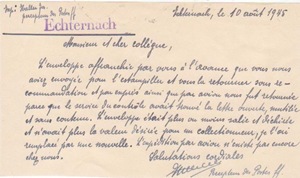 Echternach, le 10 août 1945
percepteur des Postes ff
Echternach
Monsieur et cher collègue,
L'enveloppe affranchie par vous à l'avance que vous nous
avez envoyée pour l'estampiller et vous la retourner sous re-
commandation et par exprès ainsi que par avion nous fut retournée
parce que le service du contrôle avait trouvé la lettre ouverte, mutilée
et sans contenu. L'enveloppe était plus ou moins salie et déchirée
et n'avait plus la valeur désirée pour un collectionneur, je l'ai
remplacée par une nouvelle. L'expédition par avion n'existe pas encore
chez nous.
Salutations cordiales
Percepteur des Postes ff.